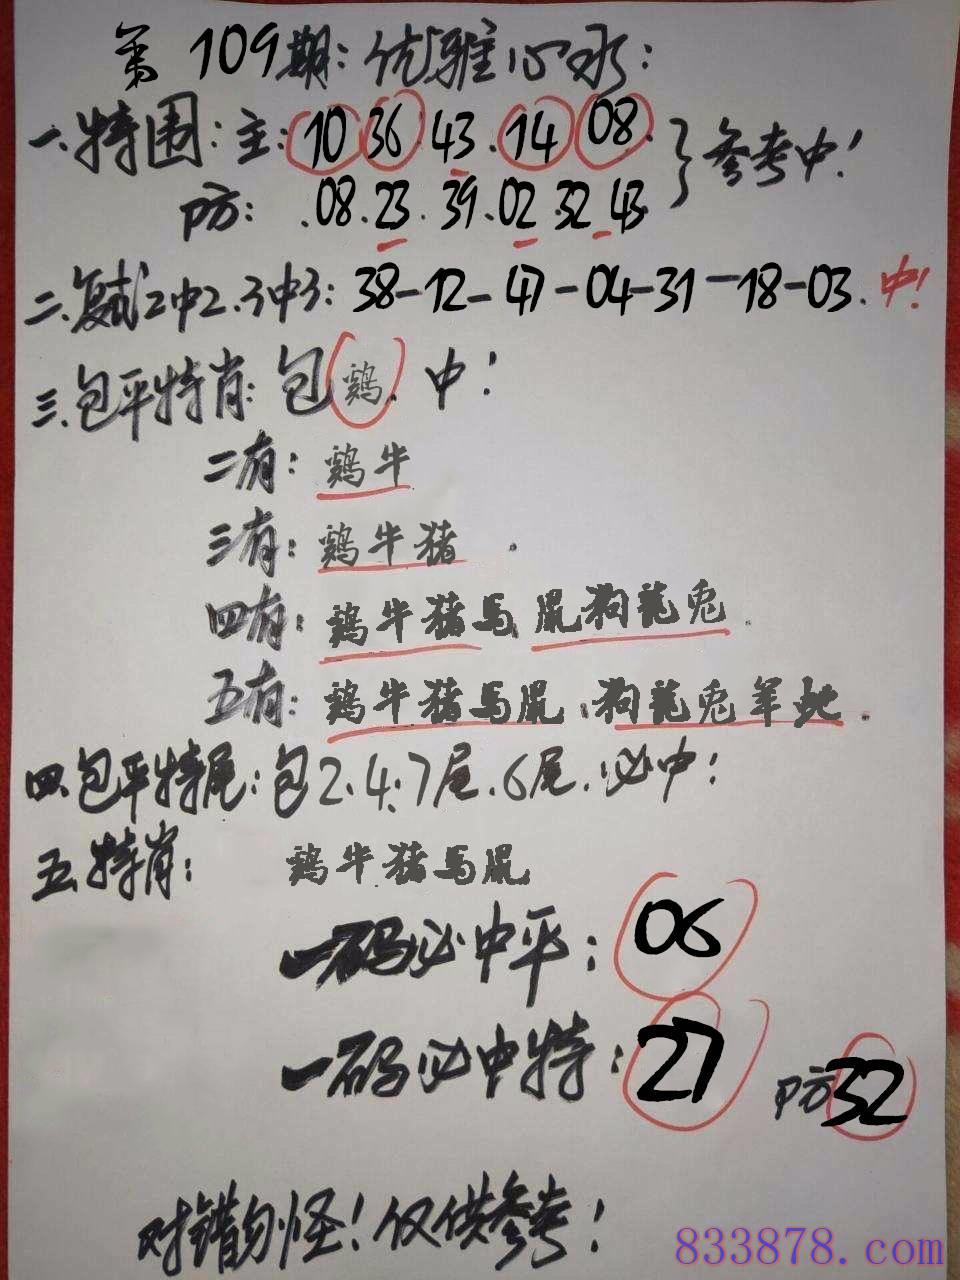 第109期:优雅心水:
一.特围:主:10 36.43.14.08.
防:.08.23.39.02.32.43. }参考中!
二.复试2中2.3中3:38-12-47-04-31-18-03.中!
三.包平特肖:包鸡.中!
二有:鸡牛.
三有:鸡牛猪.
四有:鸡牛猪马.鼠狗龍兔.
五有:鸡牛猪马鼠.狗龍兔羊蛇.
四.包平特尾:包2.4.7尾.6尾.必中!
五.特肖:鸡牛猪马鼠
一码必中平:06
一码必中特:27 防32
对错勿怪!仅供参考!
833878.com